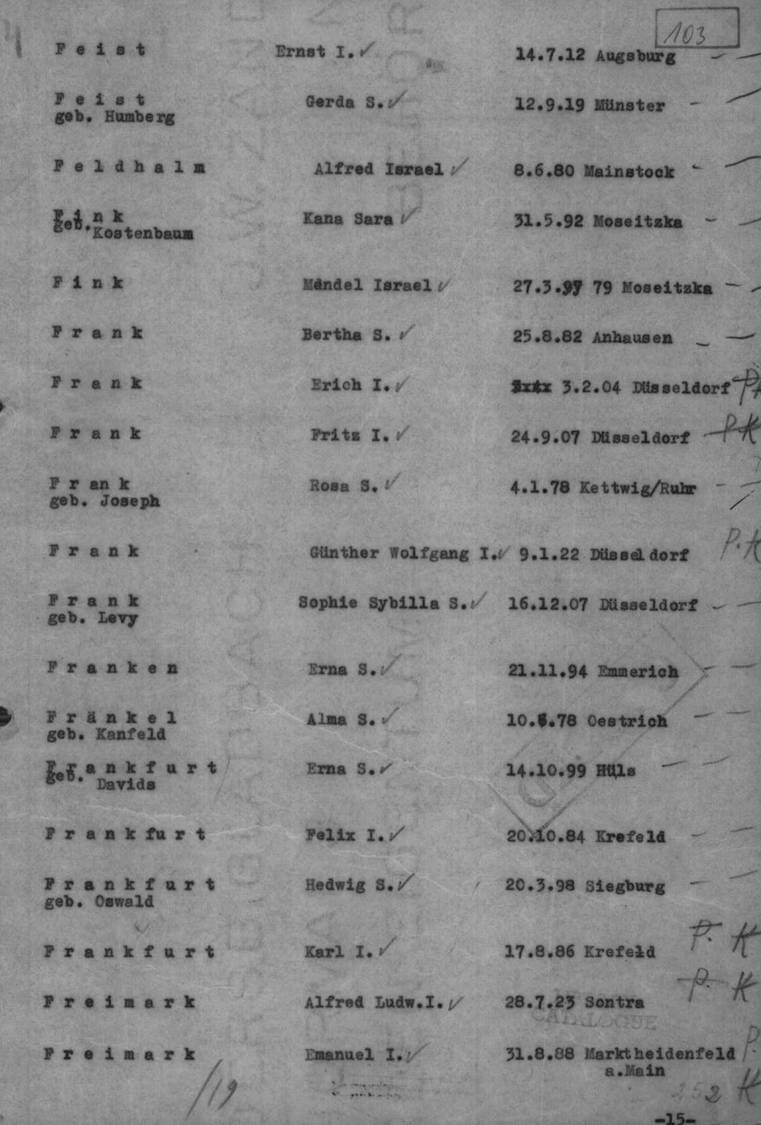 103
Feist Ernst I. 14.7.12 Augsburg
Feist Gerda S. 12.9.19 Münster
geb. Humberg
Feldhalm Alfred Israel 8.6.80 Mainstock
Fink Kana Sara 31.5.92 Moseitzka
geb. Kostenbaum
Fink Mendel Israel 27.3.97 79 Moseitzka
Frank Bertha S. 25.8.82 Anhausen
Frank Erich I. 3.2.04 Düsseldorf P.
Frank Fritz I. 24.9.07 Düsseldorf P.K
Frank Rosa S. 4.1.78 Kettwig/Ruhr
geb. Joseph
Frank Günther Wolfgang I. 9.1.22 Düsseldorf P.K
Frank Sophie Sybilla S. 16.12.07 Düsseldorf
geb. Levy
Franken Erna S. 21.11.94 Emmerich
Fränkel Alma S. 10.6.78 Oestrich
geb. Kanfeld
Frankfurt Erna S. 14.10.99 Hüls
geb. Davids
Frankfurt Felix I. 20.10.84 Krefeld
Frankfurt Hedwig S. 20.3.98 Siegburg
geb. Oswald
Frankfurt Karl I. 17.8.86 Krefeld P. K
Freimark Alfred Ludw.I. 28.7.23 Sontra P. K
CATALOGUE
Freimark Emanuel I. 31.8.88 Marktheidenfeld P.
a.Main
/19 252 K
-15-